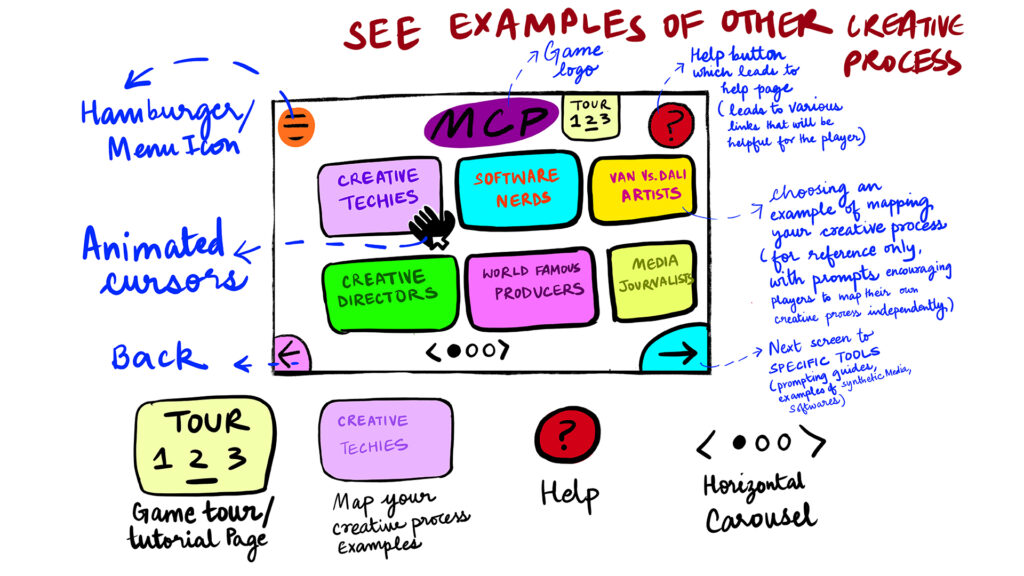 SEE EXAMPLES OF OTHER CREATIVE
PROCESS
Game
logo
Help button
which leads to
help page
(leads to various
links that will be
helpful for the player)
Hamburger/
Menu Icon
MCP
TOUR
1 2 3
?
CREATIVE
TECHIES
SOFTWARE
NERDS
VAN VS. DALI
ARTISTS
choosing an
example of mapping
your creative process
(for reference only,
with prompts encouraging
players to map their own
creative process independently.)
Animated
cursors
CREATIVE
DIRECTORS
WORLD FAMOUS
PRODUCERS
MEDIA
JOURNALISTS
Back
←
< ● ○ ○ >
→
Next screen to
SPECIFIC TOOLS
(prompting guides,
examples of synthetic Media,
softwares)
TOUR
1 2 3
Game tour/
tutorial Page
CREATIVE
TECHIES
Map your
creative process
Examples
?
Help
< ● ○ ○ >
Horizontal
Carousel